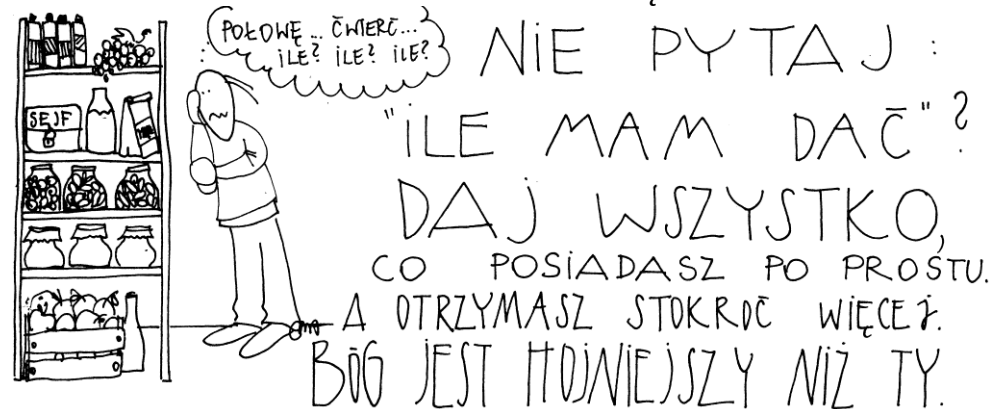 POŁOWĘ... ĆWIERĆ...
ILE? ILE? ILE?
NIE PYTAJ:
"ILE MAM DAĆ"?
DAJ WSZYSTKO,
CO POSIADASZ PO PROSTU.
A OTRZYMASZ STOKROĆ WIĘCEJ.
BÓG JEST HOJNIEJSZY NIŻ TY.
SEJF